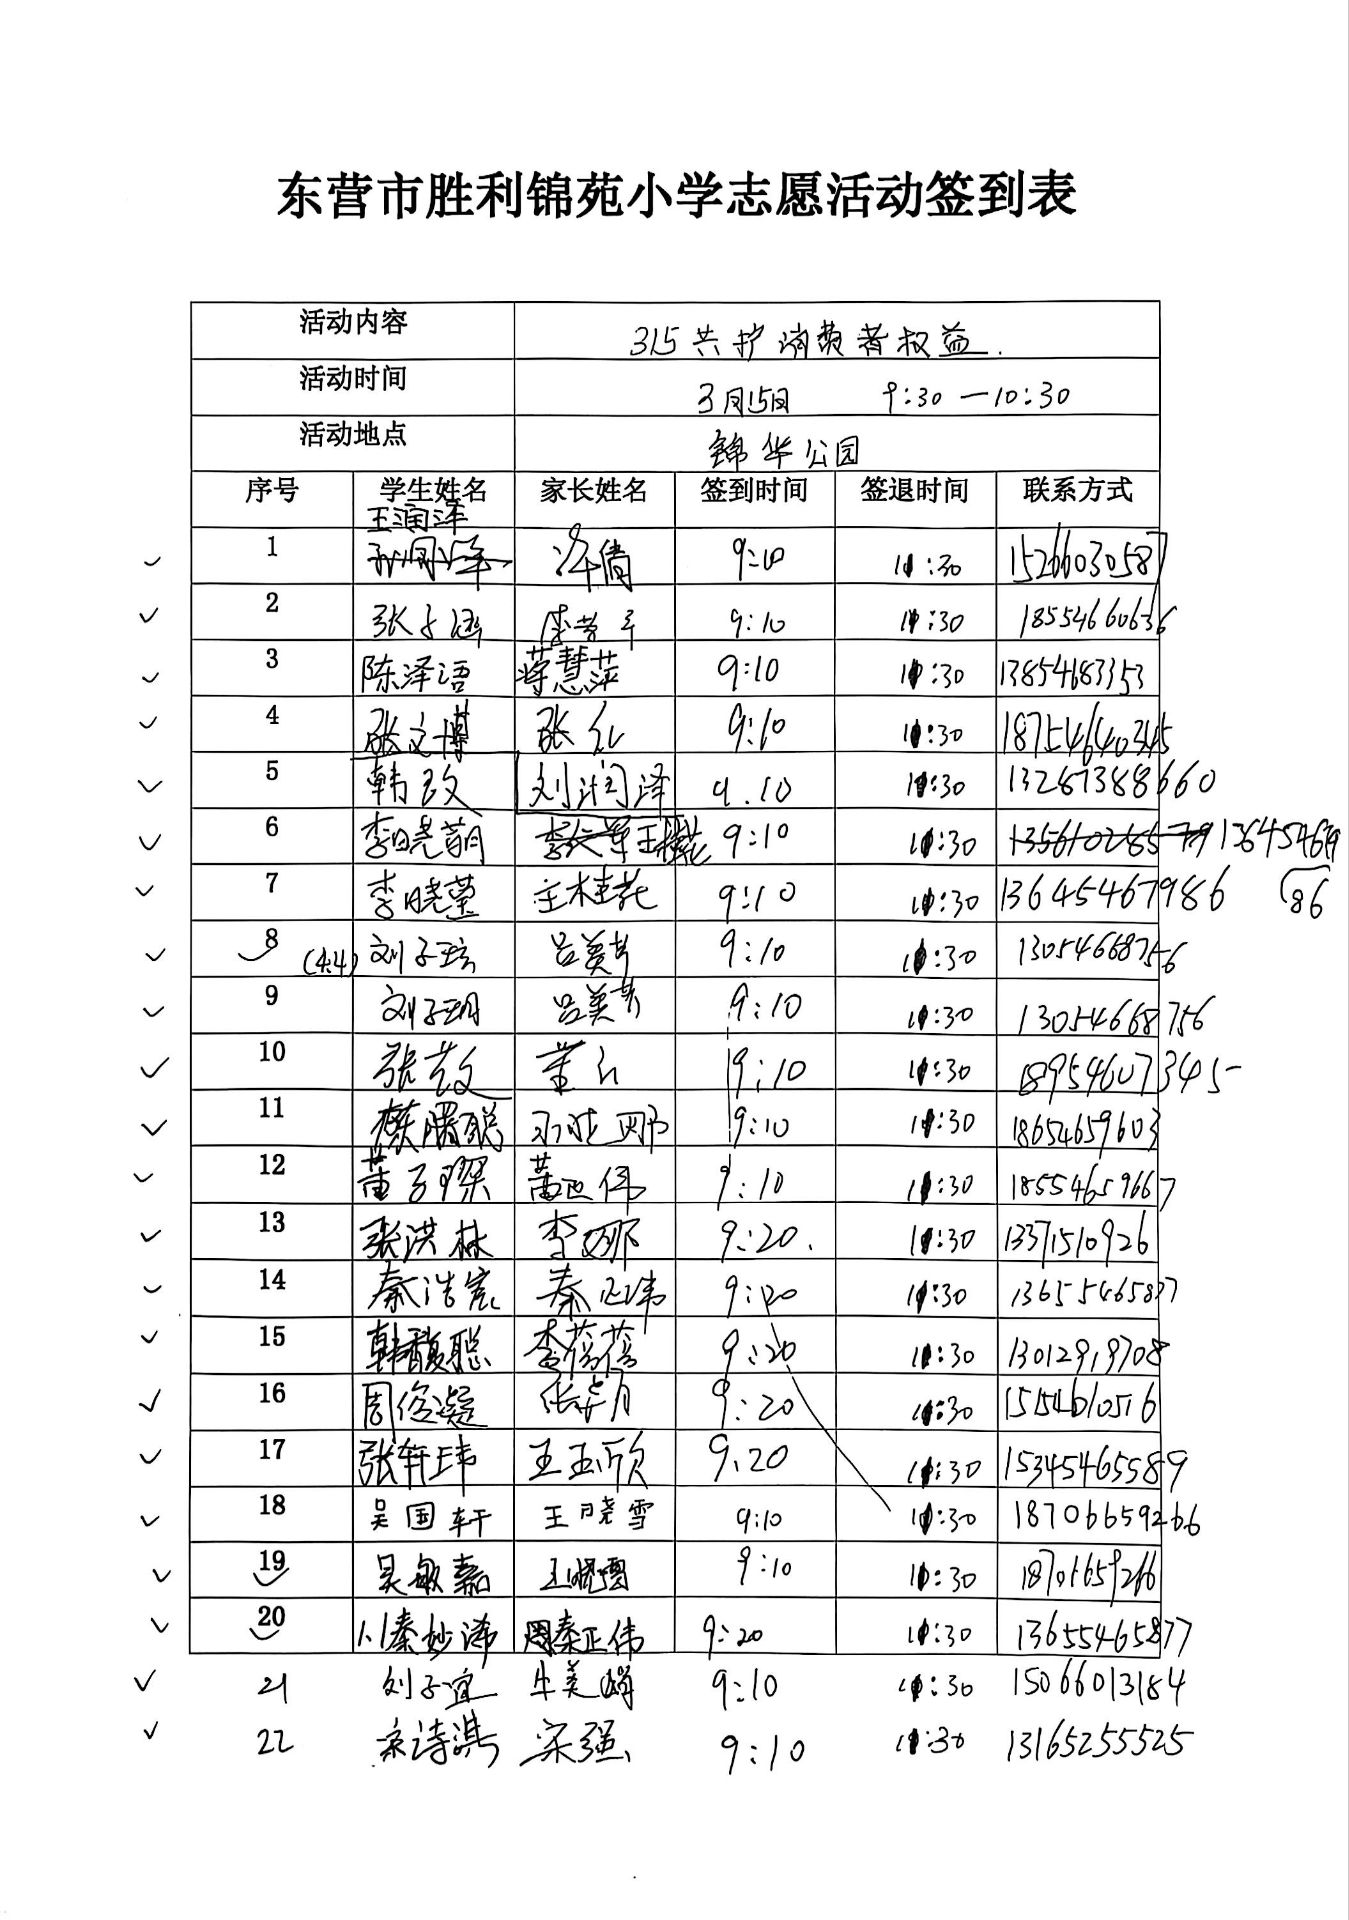 东营市胜利锦苑小学志愿活动签到表
活动内容 315共护消费者权益.
活动时间 3月15日 9:30—10:30
活动地点 锦华公园
序号 学生姓名 家长姓名 签到时间 签退时间 联系方式
王润泽
1 倩 9:10 :30 15266030587
2 张子涵 9:10 :30 18554660636
3 陈泽语 蒋慧萍 9:10 :30 13854683353
4 张文博 张 9:10 :30 18754640345
5 韩玫 刘润泽 9.10 :30 13287388660
6 李晓萌 王桂花 9:10 :30 136454679
86
7 李晓莹 王桂花 9:10 :30 13645467986
8 (4.4) 刘子玹 吕美芳 9:10 :30 13054668756
9 刘子玥 吕美芳 9:10 :30 13054668756
10 张艺文 董 9:10 :30 18954607345
11 曙聪 9:10 :30 18654659603
12 董子璨 董 伟 9:10 :30 18554659667
13 张洪林 李娜 9:20. :30 13371510926
14 秦浩宸 秦正伟 9:20 :30 13655465877
15 韩馥聪 李蓓蓓 9:20 :30 13012919708
16 周俊凝 张 月 9:20 :30 15154610516
17 张轩玮 王玉欣 9.20 :30 15345465589
18 吴国轩 王晓雪 9:10 :30 18706659266
19 吴敏嘉 王晓雪 9:10 :30
20 秦妙 秦正伟 9:20 :30 13655465877
21 刘子宜 牛美娟 9:10 :30 15066013184
22 宋诗淇 宋强 9:10 :30 13165255525